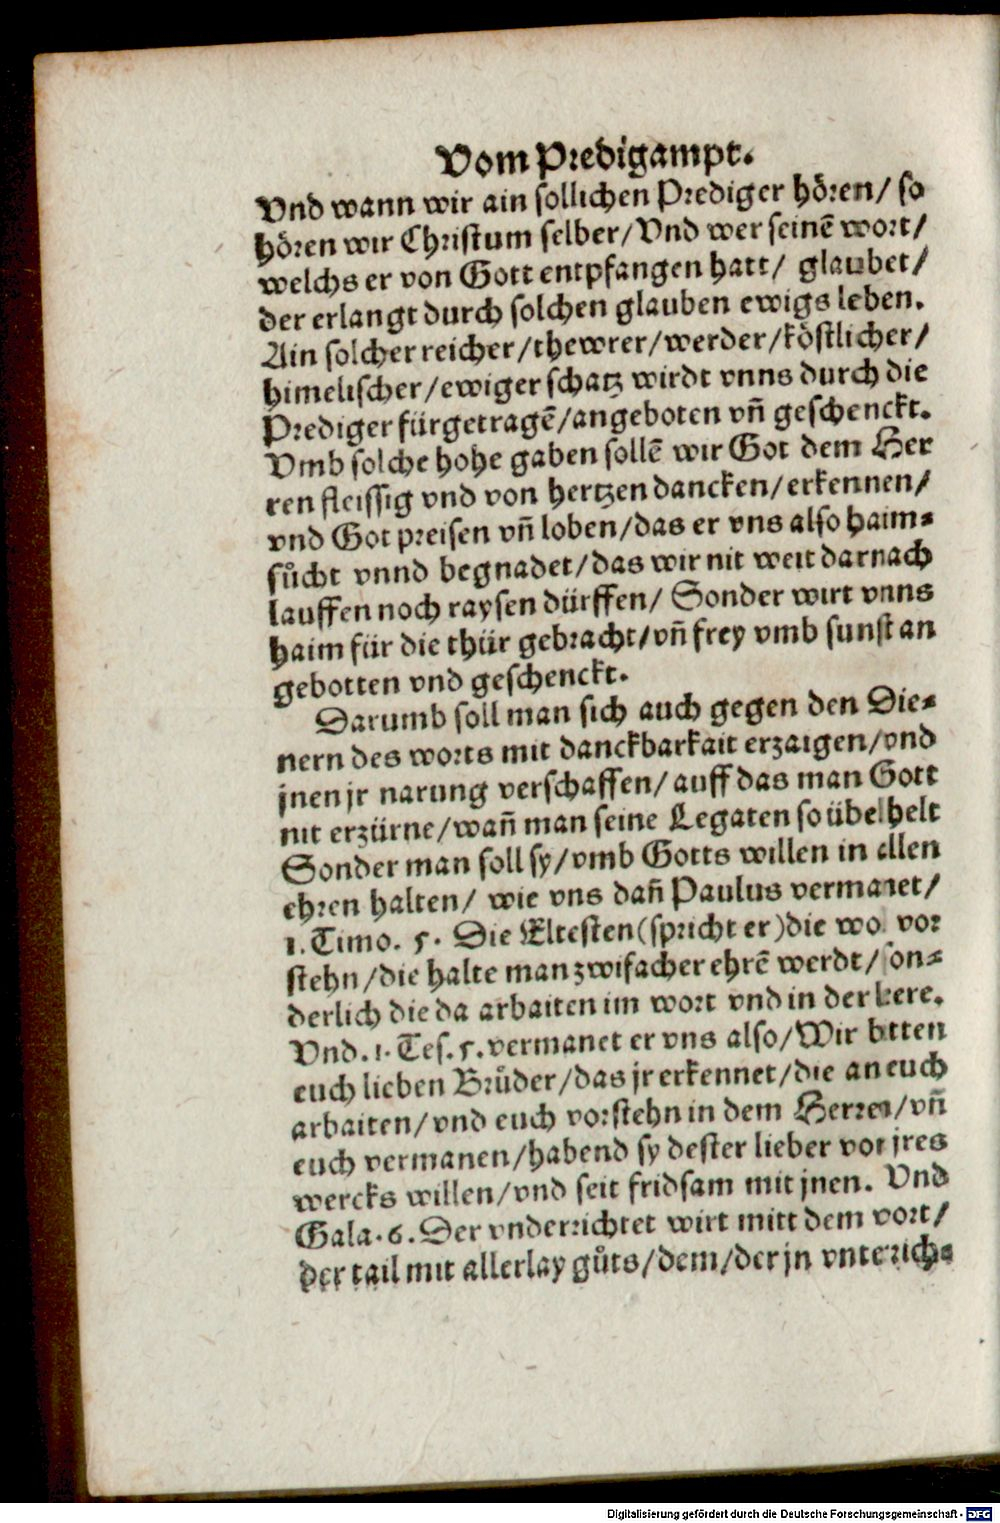 Vom Predigampt.
Vnd wann wir ain sollichen Prediger hören/ so
hören wir Christum selber/Vnd wer seinē wort/
welchs er von Gott entpfangen hatt/ glaubet/
der erlangt durch solchen glauben ewigs leben.
Ain solcher reicher/thewrer/werder/köstlicher/
himelischer/ewiger schatz wirdt vnns durch die
Prediger fürgetragē/angeboten vñ geschenckt.
Vmb solche hohe gaben sollē wir Got dem Her
ren fleissig vnd von hertzen dancken/erkennen/
vnd Got preisen vñ loben/das er vns also haim⸗
sůcht vnnd begnadet/das wir nit weit darnach
lauffen noch raysen dürffen/ Sonder wirt vnns
haim für die thür gebracht/vñ frey vmb sunst an
gebotten vnd geschenckt.
Darumb soll man sich auch gegen den Die⸗
nern des worts mit danckbarkait erzaigen/vnd
jnen jr narung verschaffen/auff das man Gott
nit erzürne/wañ man seine Legaten so übel helt
Sonder man soll sy/vmb Gotts willen in allen
ehren halten/ wie vns dañ Paulus vermanet/
1. Timo. 5. Die Eltesten(spricht er)die wol vor
stehn/die halte man zwifacher ehrē werdt/son⸗
derlich die da arbaiten im wort vnd in der Lere.
Vnd.1.Tes.5.vermanet er vns also/Wir bitten
euch lieben Brůder/das jr erkennet/die an euch
arbaiten/vnd euch vorstehn in dem Herren/vñ
euch vermanen/habend sy dester lieber vor jres
wercks willen/vnd seit fridsam mit jnen. Vnd
Gala.6.Der vnderrichtet wirt mitt dem wort/
der tail mit allerlay gůts/dem/der jn vnterich⸗
Digitalisierung gefördert durch die Deutsche Forschungsgemeinschaft - DFG